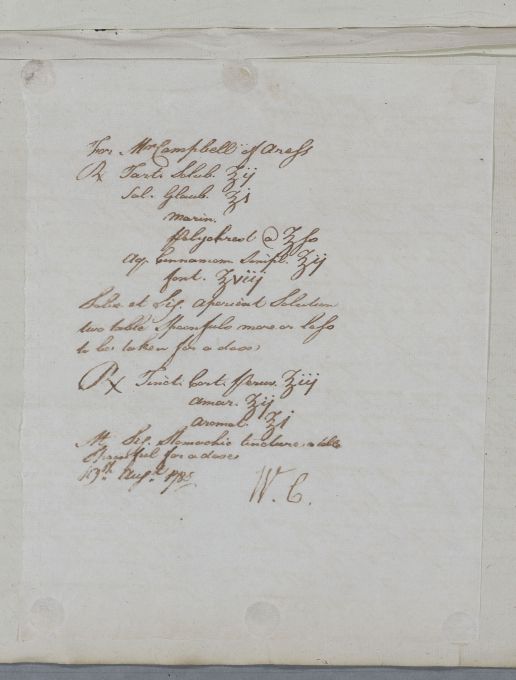 For Mr Campbell of Aress
℞ Tart. Solub. ℥ij
Sal. Glaub. ℥j
marin.
Polychrest @ ℥ss
Aq. Cinnamom. Simpl. ℥ij
font. ℥viij
Solve et Sig. Aperient Solution
two table Spoonfuls more or less
to be taken for a dose
℞ Tinct. Cort. Peruv. ℥iij
amar. ℥ij
aromat. ℥j
M. Sig. Stomachic tincture, a table
Spoonful for a dose
Augt. 178
W. C.